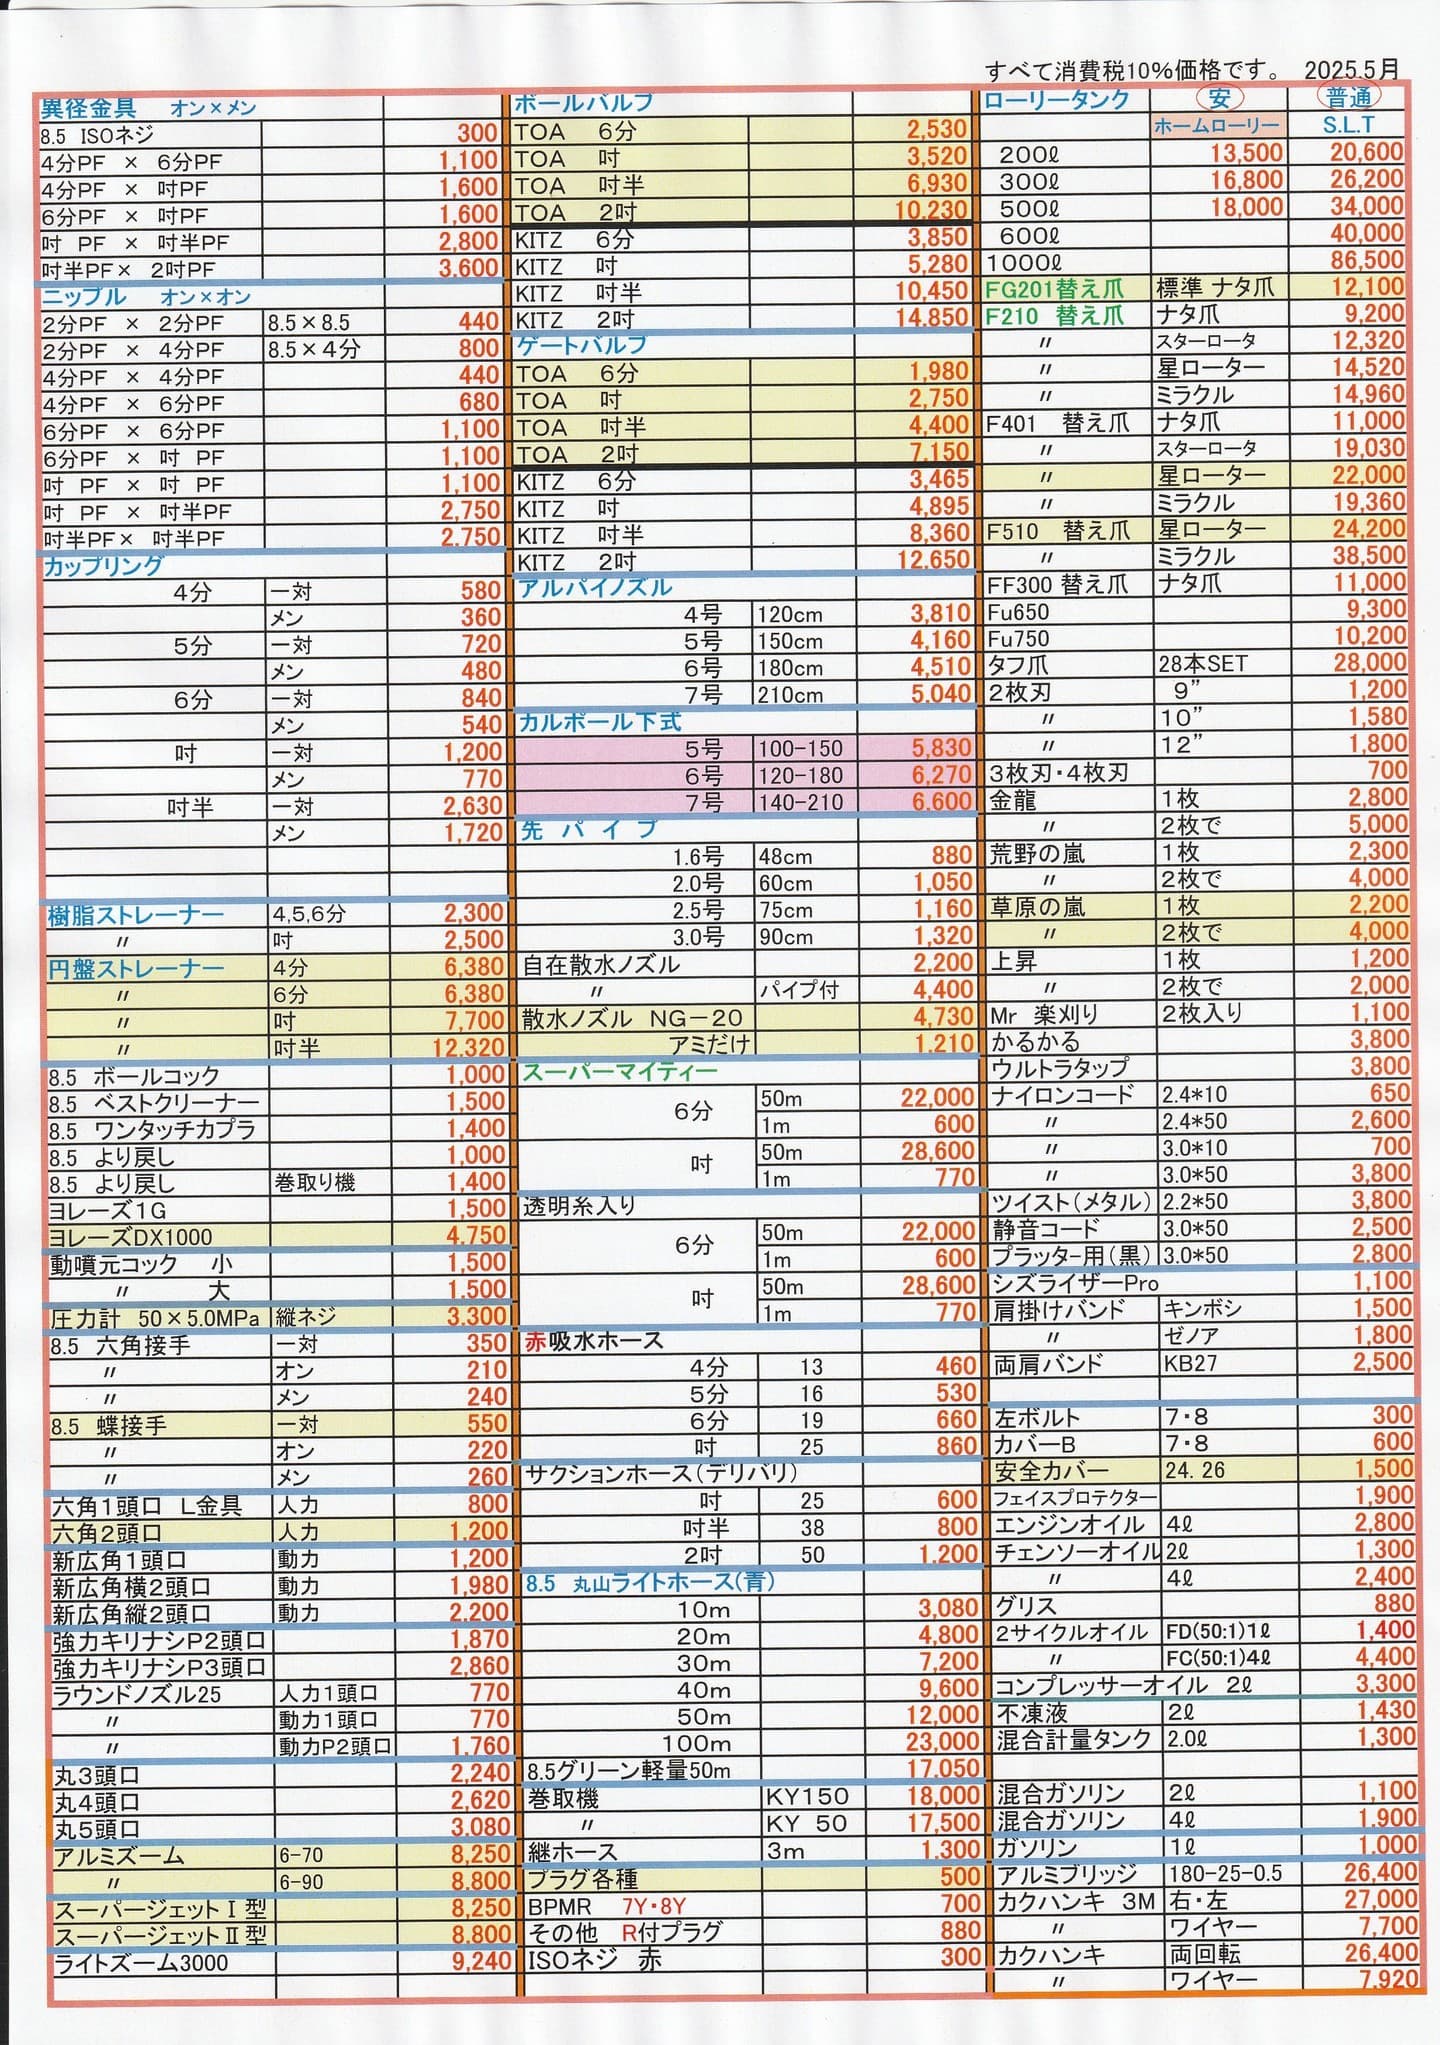 すべて消費税10%価格です。 2025.5月
異径金具 オン×メン
8.5 ISOネジ 300
4分PF × 6分PF 1,100
4分PF × 吋PF 1,600
6分PF × 吋PF 1,600
吋 PF × 吋半PF 2,800
吋半PF× 2吋PF 3,600
ニップル オン×オン
2分PF × 2分PF 8.5×8.5 440
2分PF × 4分PF 8.5×4分 800
4分PF × 4分PF 440
4分PF × 6分PF 680
6分PF × 6分PF 1,100
6分PF × 吋 PF 1,100
吋 PF × 吋 PF 1,100
吋 PF × 吋半PF 2,750
吋半PF× 吋半PF 2,750
カップリング
4分 一対 580
メン 360
5分 一対 720
メン 480
6分 一対 840
メン 540
吋 一対 1,200
メン 770
吋半 一対 2,630
メン 1,720
樹脂ストレーナー 4,5,6分 2,300
〃 吋 2,500
円盤ストレーナー 4分 6,380
〃 6分 6,380
〃 吋 7,700
〃 吋半 12,320
8.5 ボールコック 1,000
8.5 ベストクリーナー 1,500
8.5 ワンタッチカプラ 1,400
8.5 より戻し 1,000
8.5 より戻し 巻取り機 1,400
ヨレーズ1G 1,500
ヨレーズDX1000 4,750
動噴元コック 小 1,500
〃 大 1,500
圧力計 50×5.0MPa 縦ネジ 3,300
8.5 六角接手 一対 350
〃 オン 210
〃 メン 240
8.5 蝶接手 一対 550
〃 オン 220
〃 メン 260
六角1頭口 L金具 人力 800
六角2頭口 人力 1,200
新広角1頭口 動力 1,200
新広角横2頭口 動力 1,980
新広角縦2頭口 動力 2,200
強力キリナシP2頭口 1,870
強力キリナシP3頭口 2,860
ラウンドノズル25 人力1頭口 770
〃 動力1頭口 770
〃 動力P2頭口 1,760
丸3頭口 2,240
丸4頭口 2,620
丸5頭口 3,080
アルミズーム 6-70 8,250
〃 6-90 8,800
スーパージェットⅠ型 8,250
スーパージェットⅡ型 8,800
ライトズーム3000 9,240
ボールバルブ
TOA 6分 2,530
TOA 吋 3,520
TOA 吋半 6,930
TOA 2吋 10,230
KITZ 6分 3,850
KITZ 吋 5,280
KITZ 吋半 10,450
KITZ 2吋 14,850
ゲートバルブ
TOA 6分 1,980
TOA 吋 2,750
TOA 吋半 4,400
TOA 2吋 7,150
KITZ 6分 3,465
KITZ 吋 4,895
KITZ 吋半 8,360
KITZ 2吋 12,650
アルパイノズル
4号 120cm 3,810
5号 150cm 4,160
6号 180cm 4,510
7号 210cm 5,040
カルポール下式
5号 100-150 5,830
6号 120-180 6,270
7号 140-210 6,600
先 パ イ プ
1.6号 48cm 880
2.0号 60cm 1,050
2.5号 75cm 1,160
3.0号 90cm 1,320
自在散水ノズル 2,200
〃 パイプ付 4,400
散水ノズル NG-20 4,730
アミだけ 1,210
スーパーマイティー
6分 50m 22,000
1m 600
吋 50m 28,600
1m 770
透明糸入り
6分 50m 22,000
1m 600
吋 50m 28,600
1m 770
赤吸水ホース
4分 13 460
5分 16 530
6分 19 660
吋 25 860
サクションホース(デリバリ)
吋 25 600
吋半 38 800
2吋 50 1,200
8.5 丸山ライトホース(青)
10m 3,080
20m 4,800
30m 7,200
40m 9,600
50m 12,000
100m 23,000
8.5グリーン軽量50m 17,050
巻取機 KY150 18,000
〃 KY 50 17,500
継ホース 3m 1,300
プラグ各種 500
BPMR 7Y・8Y 700
その他 R付プラグ 880
ISOネジ 赤 300
ローリータンク 安 普通
ホームローリー S.L.T
200ℓ 13,500 20,600
300ℓ 16,800 26,200
500ℓ 18,000 34,000
600ℓ 40,000
1000ℓ 86,500
FG201替え爪 標準 ナタ爪 12,100
F210 替え爪 ナタ爪 9,200
〃 スターロータ 12,320
〃 星ローター 14,520
〃 ミラクル 14,960
F401 替え爪 ナタ爪 11,000
〃 スターロータ 19,030
〃 星ローター 22,000
〃 ミラクル 19,360
F510 替え爪 星ローター 24,200
〃 ミラクル 38,500
FF300 替え爪 ナタ爪 11,000
Fu650 9,300
Fu750 10,200
タフ爪 28本SET 28,000
2枚刃 9” 1,200
〃 10” 1,580
〃 12” 1,800
3枚刃・4枚刃 700
金龍 1枚 2,800
〃 2枚で 5,000
荒野の嵐 1枚 2,300
〃 2枚で 4,000
草原の嵐 1枚 2,200
〃 2枚で 4,000
上昇 1枚 1,200
〃 2枚で 2,000
Mr 楽刈り 2枚入り 1,100
かるかる 3,800
ウルトラタップ 3,800
ナイロンコード 2.4*10 650
〃 2.4*50 2,600
〃 3.0*10 700
〃 3.0*50 3,800
ツイスト(メタル) 2.2*50 3,800
静音コード 3.0*50 2,500
プラッター用(黒) 3.0*50 2,800
シズライザーPro 1,100
肩掛けバンド キンボシ 1,500
〃 ゼノア 1,800
両肩バンド KB27 2,500
左ボルト 7・8 300
カバーB 7・8 600
安全カバー 24. 26 1,500
フェイスプロテクター 1,900
エンジンオイル 4ℓ 2,800
チェンソーオイル 2ℓ 1,300
〃 4ℓ 2,400
グリス 880
2サイクルオイル FD(50:1)1ℓ 1,400
〃 FC(50:1)4ℓ 4,400
コンプレッサーオイル 2ℓ 3,300
不凍液 2ℓ 1,430
混合計量タンク 2.0ℓ 1,300
混合ガソリン 2ℓ 1,100
混合ガソリン 4ℓ 1,900
ガソリン 1ℓ 1,000
アルミブリッジ 180-25-0.5 26,400
カクハンキ 3M 右・左 27,000
〃 ワイヤー 7,700
カクハンキ 両回転 26,400
〃 ワイヤー 7,920